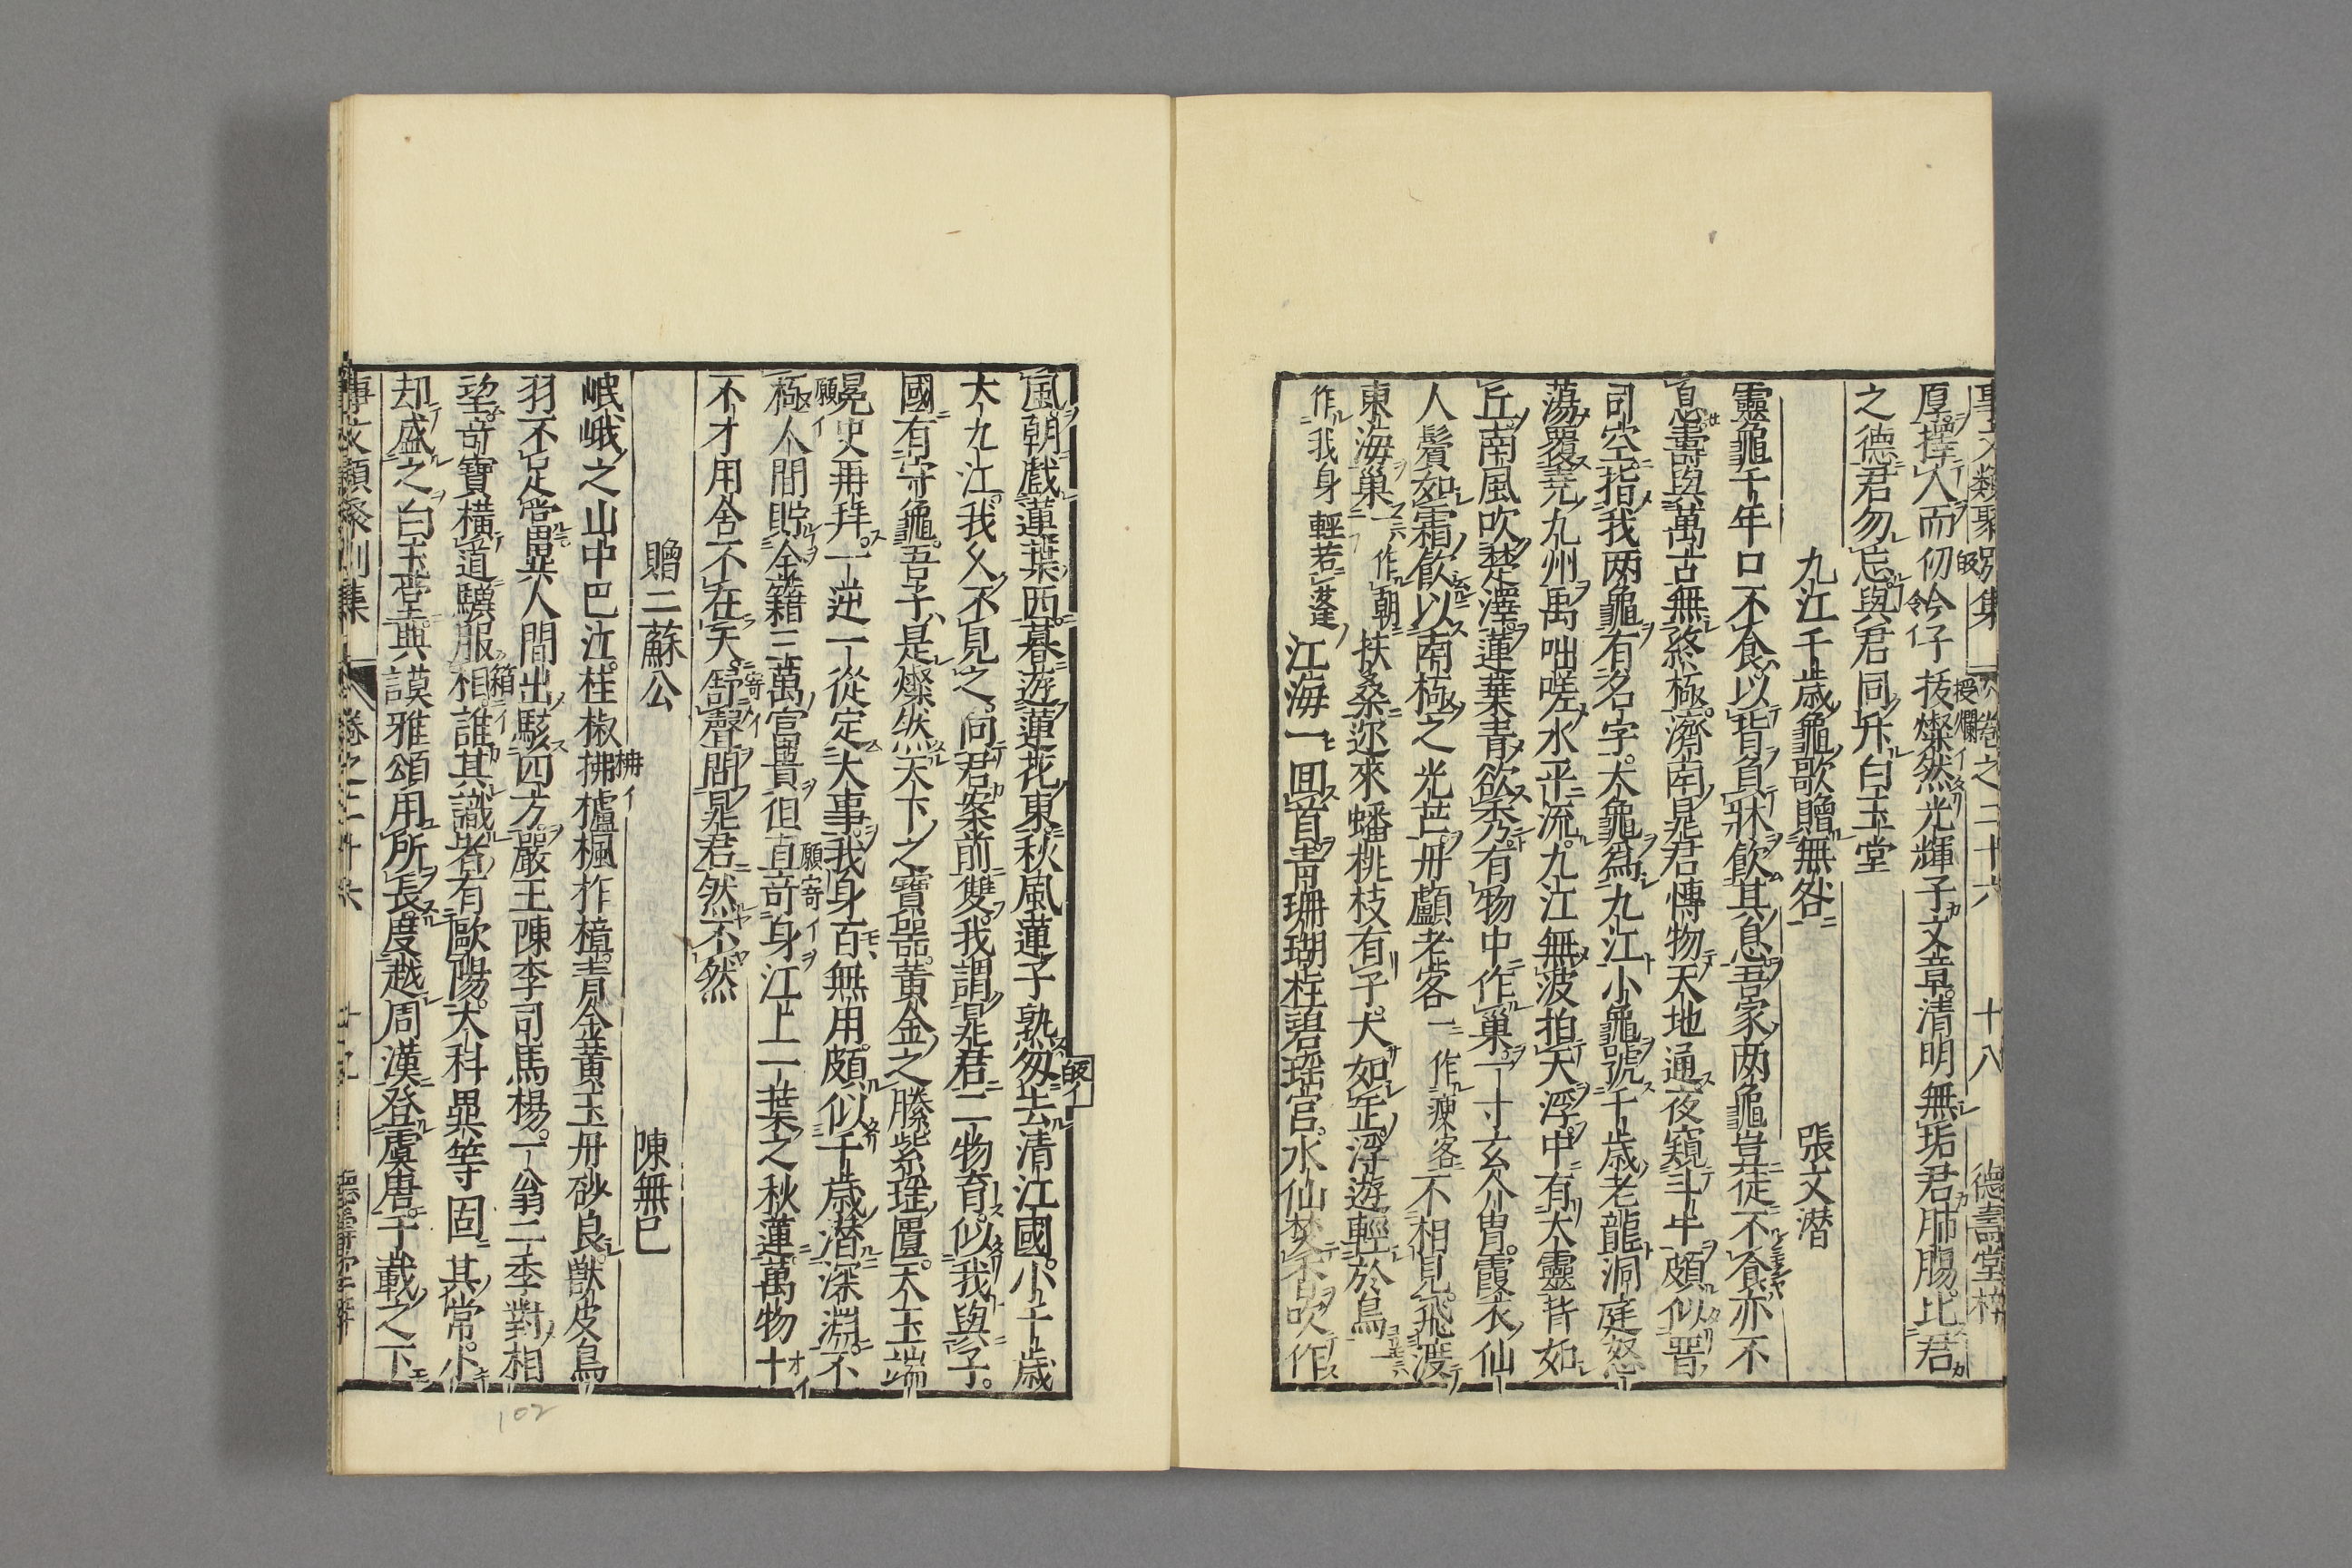 事文類聚別集 卷之二十六 十八 德壽堂梓
厚擇人而仞衿仔拔燦然光輝子文章清明無垢君肺腸比君
之德君勿忘與君同升白玉堂
九江千歲龜歌贈無咎 張文潜
靈龜千年口不食以背負牀飲其息吾家两龜豈徒不食亦不
息壽與萬古無終極濟南晁君愽物天地通夜窺斗牛頗似晋
司空指我两龜有名字大龜為九江小龜號千歲老龍洞庭怒
蕩覆堯九州禹咄嗟水平流九江無波拍天浮中有大靈背如
丘南風吹楚澤蓮葉青欲秀有物中作巢一寸玄介胄霞衣仙
人鬢如霜飲以南極之光芒丹顱老客一作痩客不相見飛渡
東海巢一作朝扶桑迩來蟠桃枝有子犬如正浮遊輕於鳥一
作我身輕若蓬江海一囬首青珊瑚柱碧瑶宫水仙焚香吹作
風朝戲蓮葉西暮遊蓮花東秋風蓮子熟忽去清江國小千歲
大九江我父不見之向君案前雙我謂晁君二物育似我與子
國有守龜吾子是燦然天下之寶器黄金之縢紫瑶匱大玉端
冕史再拜一逆一從定大事我身百無用頗似千歲潜深淵不
極人間貯金籍三萬官置但直竒身江上一葉之秋蓮萬物十
不才用舍不在天舒聲問晁君然不然
贈二蘇公 陳無己
岷峨之山中巴江桂椒拂櫨楓柞樟青金黄玉丹砂良獸皮鳥
羽不足當異人間出駭四方嚴王陳李司馬楊一翁二季對相
望竒寶橫道驥服相誰其識者有歐陽大科異等固其常小
却盛之白玉堂典謨雅頌用所長度越周漢登虞唐千載之下